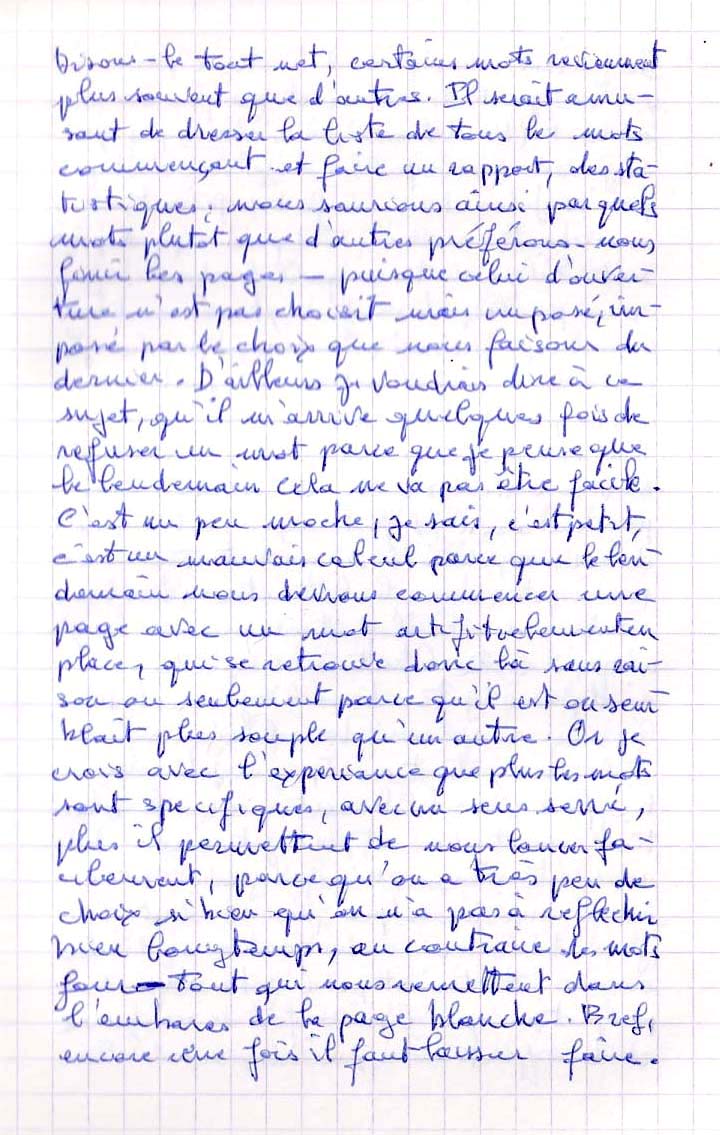 Disons-le tout net, certains mots reviennent
plus souvent que d'autres. Il serait amu-
sant de dresser la liste de tous les mots
commençant et faire un rapport, des sta-
tistiques, nous saurions ainsi par quels
mots plutôt que d'autres préférons-nous
finir les pages – puisque celui d'ouver-
ture n'est pas choisit mais imposé, im-
posé par le choix que nous faisons du
dernier. D'ailleurs je voudrais dire à ce
sujet, qu'il m'arrive quelques fois de
refuser un mot parce que je pense que
le lendemain cela ne va pas être facile.
C'est un peu moche, je sais, c'est petit,
c'est un mauvais calcul parce que le len-
demain nous devons commencer une
page avec un mot artificiellement en
place, qui se retrouve donc là sans rai-
son ou seulement parce qu'il est ou sem-
blait plus souple qu'un autre. Or je
crois avec l'expériance que plus les mots
sont specifiques, avec un sens serré,
plus il permettent de nous lancer fa-
cilement, parce qu'on a très peu de
choix si bien qu'on n'a pas à reflechir
bien longtemps, au contraire des mots
four-tout qui nous remettent dans
l'embaras de la page blanche. Bref,
encore une fois il faut laisser faire.